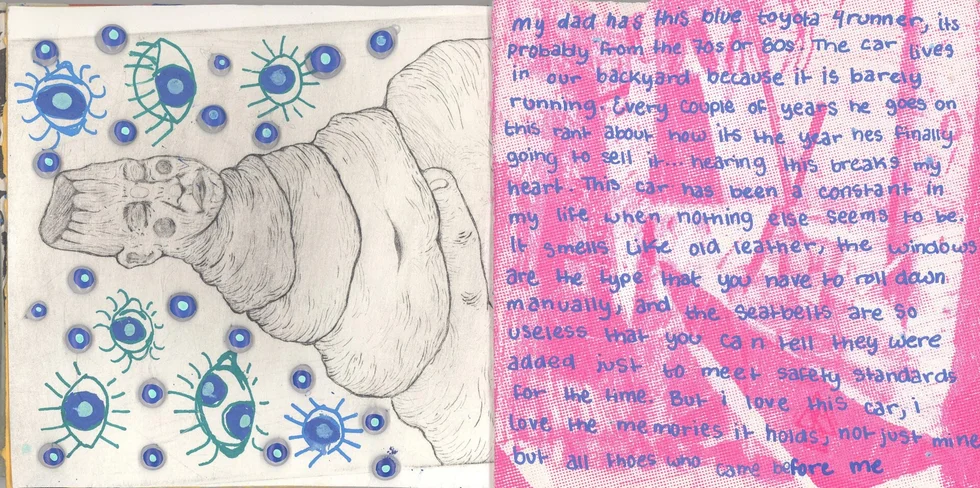 my dad has this blue toyota 4runner, its
probably from the 70s or 80s. The car lives
in our backyard because it is barely
running. Every couple of years he goes on
this rant about how its the year hes finally
going to sell it... hearing this breaks my
heart. This car has been a constant in
my life when nothing else seems to be.
It smells like old leather, the windows
are the type that you have to roll down
manually, and the seatbelts are so
useless that you can tell they were
added just to meet safety standards
for the time. But i love this car, i
love the memories it holds, not just mine
but all thoes who came before me